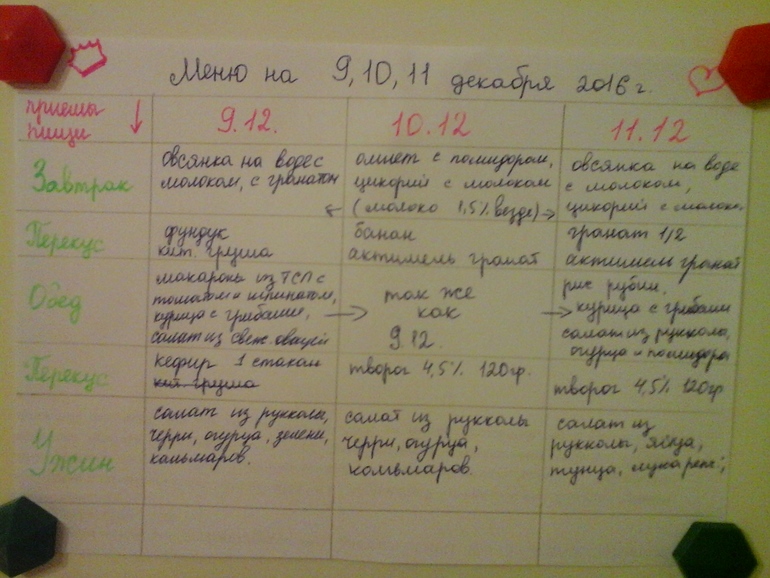 Меню на 9,10,11 декабря 2016г.
приемы пищи ↓ 9.12. 10.12 11.12
Завтрак
овсянка на воде с
молоком, с гранатом
омлет с помидором,
цикорий с молоком
(молоко 1,5% везде)
овсянка на воде
с молоком,
цикорий с молоком
Перекус
фундук
кит. груша
банан
актимель гранат
гранат 1/2
актимель гранат
Обед
макароны из ТСП с
томатом и шпинатом,
курица с грибами,
салат из свеж. овощей
так же
как
9.12.
рис рубин,
курица с грибами
салат из рукколы,
огурца и помидора
Перекус
кефир 1 стакан
кит. груша
творог 4,5% 120гр.
творог 4,5% 120гр
Ужин
салат из рукколы,
черри, огурца, зелени,
кальмаров.
салат из рукколы
черри, огурца,
кальмаров.
салат из
рукколы, яйца,
тунца, лука репч;